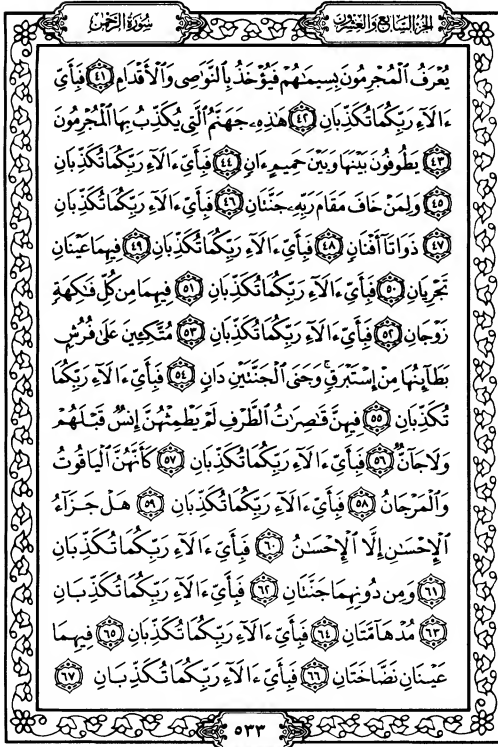 سُورَةُ الرَّحْمٰن
الجُزءُ السَّابِعُ وَالعِشْرُون
يُعْرَفُ الْمُجْرِمُونَ بِسِيمَاهُمْ فَيُؤْخَذُ بِالنَّوَاصِي وَالْأَقْدَامِ ٤١ فَبِأَيِّ
ءَالَآءِ رَبِّكُمَا تُكَذِّبَانِ ٤٢ هَٰذِهِۦ جَهَنَّمُ الَّتِي يُكَذِّبُ بِهَا الْمُجْرِمُونَ
٤٣ يَطُوفُونَ بَيْنَهَا وَبَيْنَ حَمِيمٍ ءَانٍ ٤٤ فَبِأَيِّ ءَالَآءِ رَبِّكُمَا تُكَذِّبَانِ
٤٥ وَلِمَنْ خَافَ مَقَامَ رَبِّهِۦ جَنَّتَانِ ٤٦ فَبِأَيِّ ءَالَآءِ رَبِّكُمَا تُكَذِّبَانِ
٤٧ ذَوَاتَآ أَفْنَانٍ ٤٨ فَبِأَيِّ ءَالَآءِ رَبِّكُمَا تُكَذِّبَانِ ٤٩ فِيهِمَا عَيْنَانِ
تَجْرِيَانِ ٥٠ فَبِأَيِّ ءَالَآءِ رَبِّكُمَا تُكَذِّبَانِ ٥١ فِيهِمَا مِن كُلِّ فَٰكِهَةٍ
زَوْجَانِ ٥٢ فَبِأَيِّ ءَالَآءِ رَبِّكُمَا تُكَذِّبَانِ ٥٣ مُتَّكِـِٔينَ عَلَىٰ فُرُشٍۭ
بَطَآئِنُهَا مِنْ إِسْتَبْرَقٍ ۚ وَجَنَى الْجَنَّتَيْنِ دَانٍ ٥٤ فَبِأَيِّ ءَالَآءِ رَبِّكُمَا
تُكَذِّبَانِ ٥٥ فِيهِنَّ قَٰصِرَٰتُ الطَّرْفِ لَمْ يَطْمِثْهُنَّ إِنسٌ قَبْلَهُمْ
وَلَا جَآنٌّ ٥٦ فَبِأَيِّ ءَالَآءِ رَبِّكُمَا تُكَذِّبَانِ ٥٧ كَأَنَّهُنَّ الْيَاقُوتُ
وَالْمَرْجَانُ ٥٨ فَبِأَيِّ ءَالَآءِ رَبِّكُمَا تُكَذِّبَانِ ٥٩ هَلْ جَزَآءُ
الْإِحْسَٰنِ إِلَّا الْإِحْسَٰنُ ٦٠ فَبِأَيِّ ءَالَآءِ رَبِّكُمَا تُكَذِّبَانِ
٦١ وَمِن دُونِهِمَا جَنَّتَانِ ٦٢ فَبِأَيِّ ءَالَآءِ رَبِّكُمَا تُكَذِّبَانِ
٦٣ مُدْهَآمَّتَانِ ٦٤ فَبِأَيِّ ءَالَآءِ رَبِّكُمَا تُكَذِّبَانِ ٦٥ فِيهِمَا
عَيْنَانِ نَضَّاخَتَانِ ٦٦ فَبِأَيِّ ءَالَآءِ رَبِّكُمَا تُكَذِّبَانِ ٦٧
٥٣٣